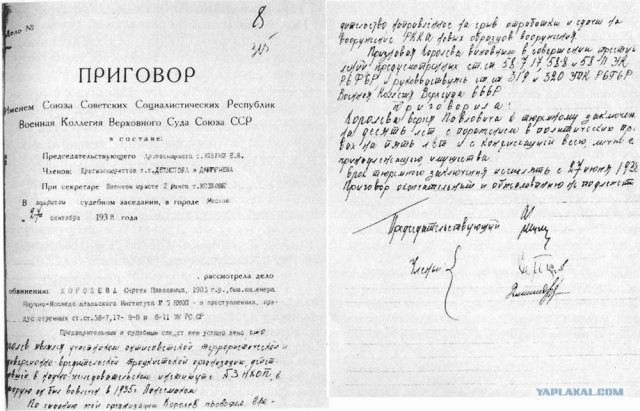 Дело №
8
ПРИГОВОР
Именем Союза Советских Социалистических Республик
Военная Коллегия Верховного Суда Союза ССР
в составе:
Председательствующего
Членов:
При секретаре Военном юристе 2 ранга т.
В закрытом судебном заседании, в городе Москве
"27" сентября 1938 года
рассмотрела дело
обвинению: КОРОЛЕВА Сергея Павловича, 190 г.р., быв. инженера
Научно-Исследовательского Института № 3 НКОП - в преступлениях, пред-
усмотренных ст.ст. 58-7, 17- 8-8 и 8-11 УК РСФСР
Предварительным и судебным следствием установлено что
Королев являлся участником антисоветской террористической и
диверсионно вредительской троцкистской организации, действ
в научно исследовательском институте № 3 НКОП, в
которую он был вовлечен в 1935г.
По заданию этой организации Королев проводил вре-
дительство направленное на срыв отработки и сдачи на
вооружение РККА новых образцов вооружения.
Признавая Королева виновным в совершении преступ-
лений предусмотренных ст.ст. 58-7, 17-58-8 и 58-11 УК
РСФСР и руководствуясь ст.ст. 319 и 320 УПК РСФСР
Военная Коллегия Верхсуда СССР
Приговорила:
Королева Сергея Павловича к тюремному заключен
на десять лет с поражением в политических пра
вах на пять лет и с конфискацией всего, лично е
принадлежащего имущества.
Срок тюремного заключения исчислять с 27 июня 1938
Приговор окончательный и обжалованию не подлежит
Председательствующий
Члены
YAPLAKAL.COM